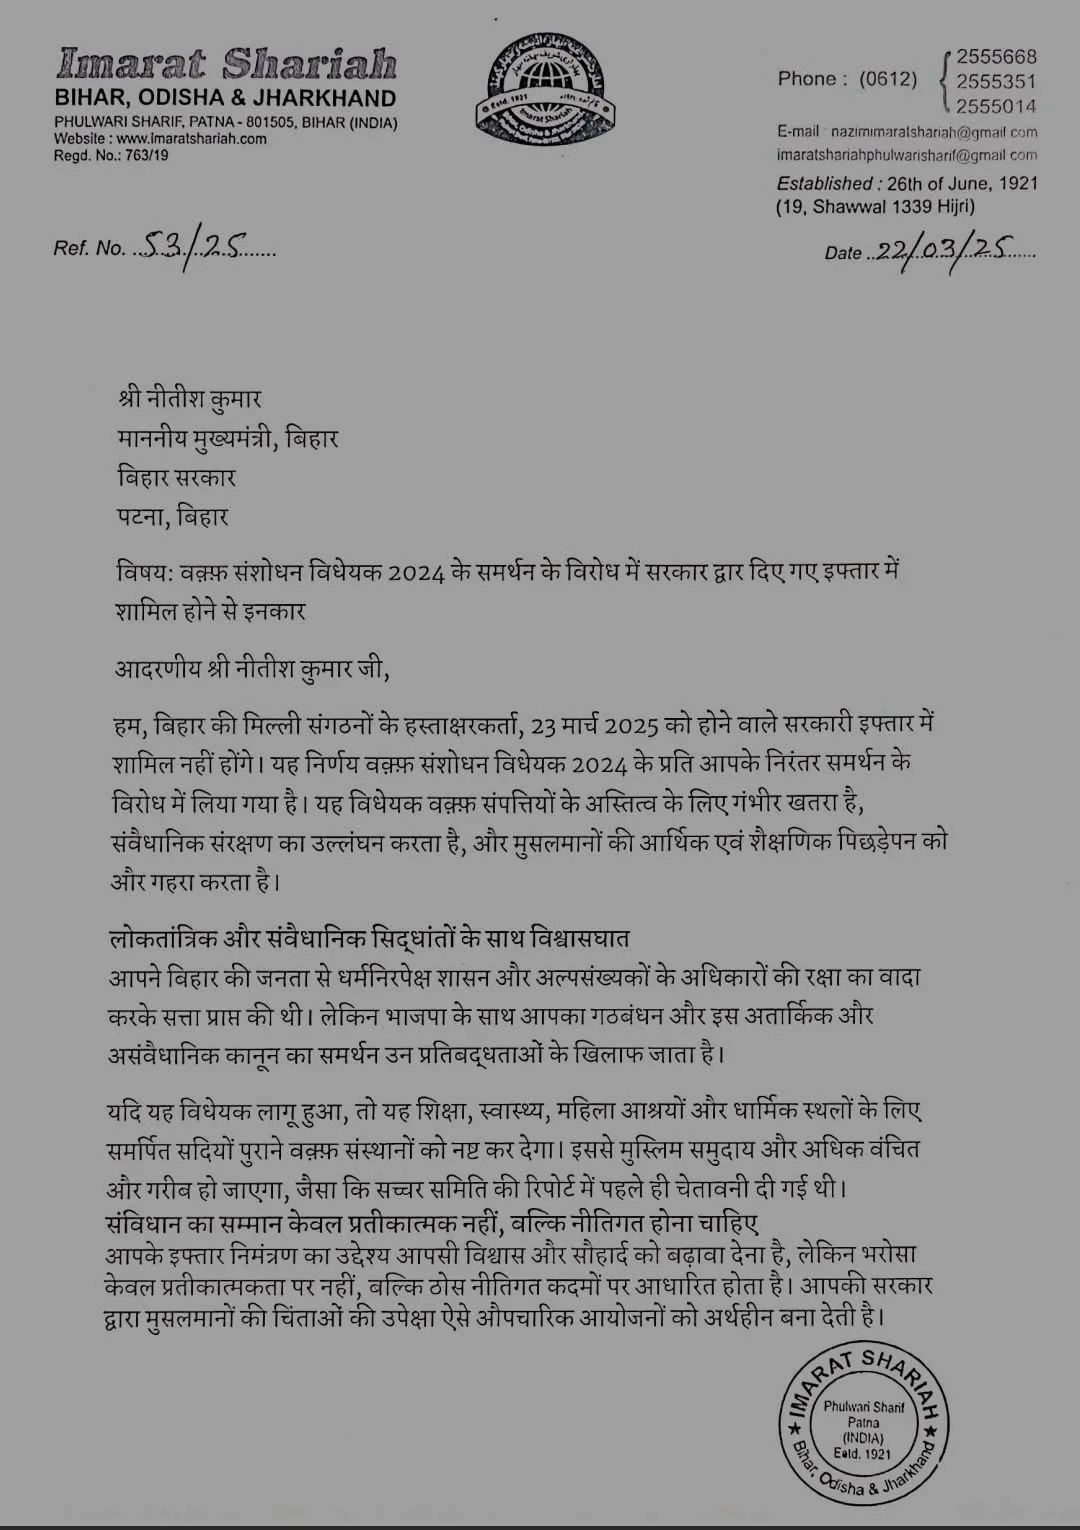 Imarat Shariah
BIHAR, ODISHA & JHARKHAND
PHULWARI SHARIF, PATNA - 801505, BIHAR (INDIA)
Website : www.imaratshariah.com
Regd. No.: 763/19
Estd. 1921
Imarat Shariah
Phone : (0612)
2555668
2555351
2555014
E-mail : nazimimaratshariah@gmail com
imaratshariahphulwarisharif@gmail com
Established : 26th of June, 1921
(19, Shawwal 1339 Hijri)
Ref. No. 53/25
Date 22/03/25
श्री नीतीश कुमार
माननीय मुख्यमंत्री, बिहार
बिहार सरकार
पटना, बिहार
विषय: वक़्फ़ संशोधन विधेयक 2024 के समर्थन के विरोध में सरकार द्वार दिए गए इफ्तार में
शामिल होने से इनकार
आदरणीय श्री नीतीश कुमार जी,
हम, बिहार की मिल्ली संगठनों के हस्ताक्षरकर्ता, 23 मार्च 2025 को होने वाले सरकारी इफ्तार में
शामिल नहीं होंगे। यह निर्णय वक़्फ़ संशोधन विधेयक 2024 के प्रति आपके निरंतर समर्थन के
विरोध में लिया गया है। यह विधेयक वक़्फ़ संपत्तियों के अस्तित्व के लिए गंभीर खतरा है,
संवैधानिक संरक्षण का उल्लंघन करता है, और मुसलमानों की आर्थिक एवं शैक्षणिक पिछड़ेपन को
और गहरा करता है।
लोकतांत्रिक और संवैधानिक सिद्धांतों के साथ विश्वासघात
आपने बिहार की जनता से धर्मनिरपेक्ष शासन और अल्पसंख्यकों के अधिकारों की रक्षा का वादा
करके सत्ता प्राप्त की थी। लेकिन भाजपा के साथ आपका गठबंधन और इस अतार्किक और
असंवैधानिक कानून का समर्थन उन प्रतिबद्धताओं के खिलाफ जाता है।
यदि यह विधेयक लागू हुआ, तो यह शिक्षा, स्वास्थ्य, महिला आश्रयों और धार्मिक स्थलों के लिए
समर्पित सदियों पुराने वक़्फ़ संस्थानों को नष्ट कर देगा। इससे मुस्लिम समुदाय और अधिक वंचित
और गरीब हो जाएगा, जैसा कि सच्चर समिति की रिपोर्ट में पहले ही चेतावनी दी गई थी।
संविधान का सम्मान केवल प्रतीकात्मक नहीं, बल्कि नीतिगत होना चाहिए
आपके इफ्तार निमंत्रण का उद्देश्य आपसी विश्वास और सौहार्द को बढ़ावा देना है, लेकिन भरोसा
केवल प्रतीकात्मकता पर नहीं, बल्कि ठोस नीतिगत कदमों पर आधारित होता है। आपकी सरकार
द्वारा मुसलमानों की चिंताओं की उपेक्षा ऐसे औपचारिक आयोजनों को अर्थहीन बना देती है।
IMARAT SHARIAH
Phulwari Sharif
Patna
(INDIA)
Estd. 1921
Bihar, Odisha & Jharkhand